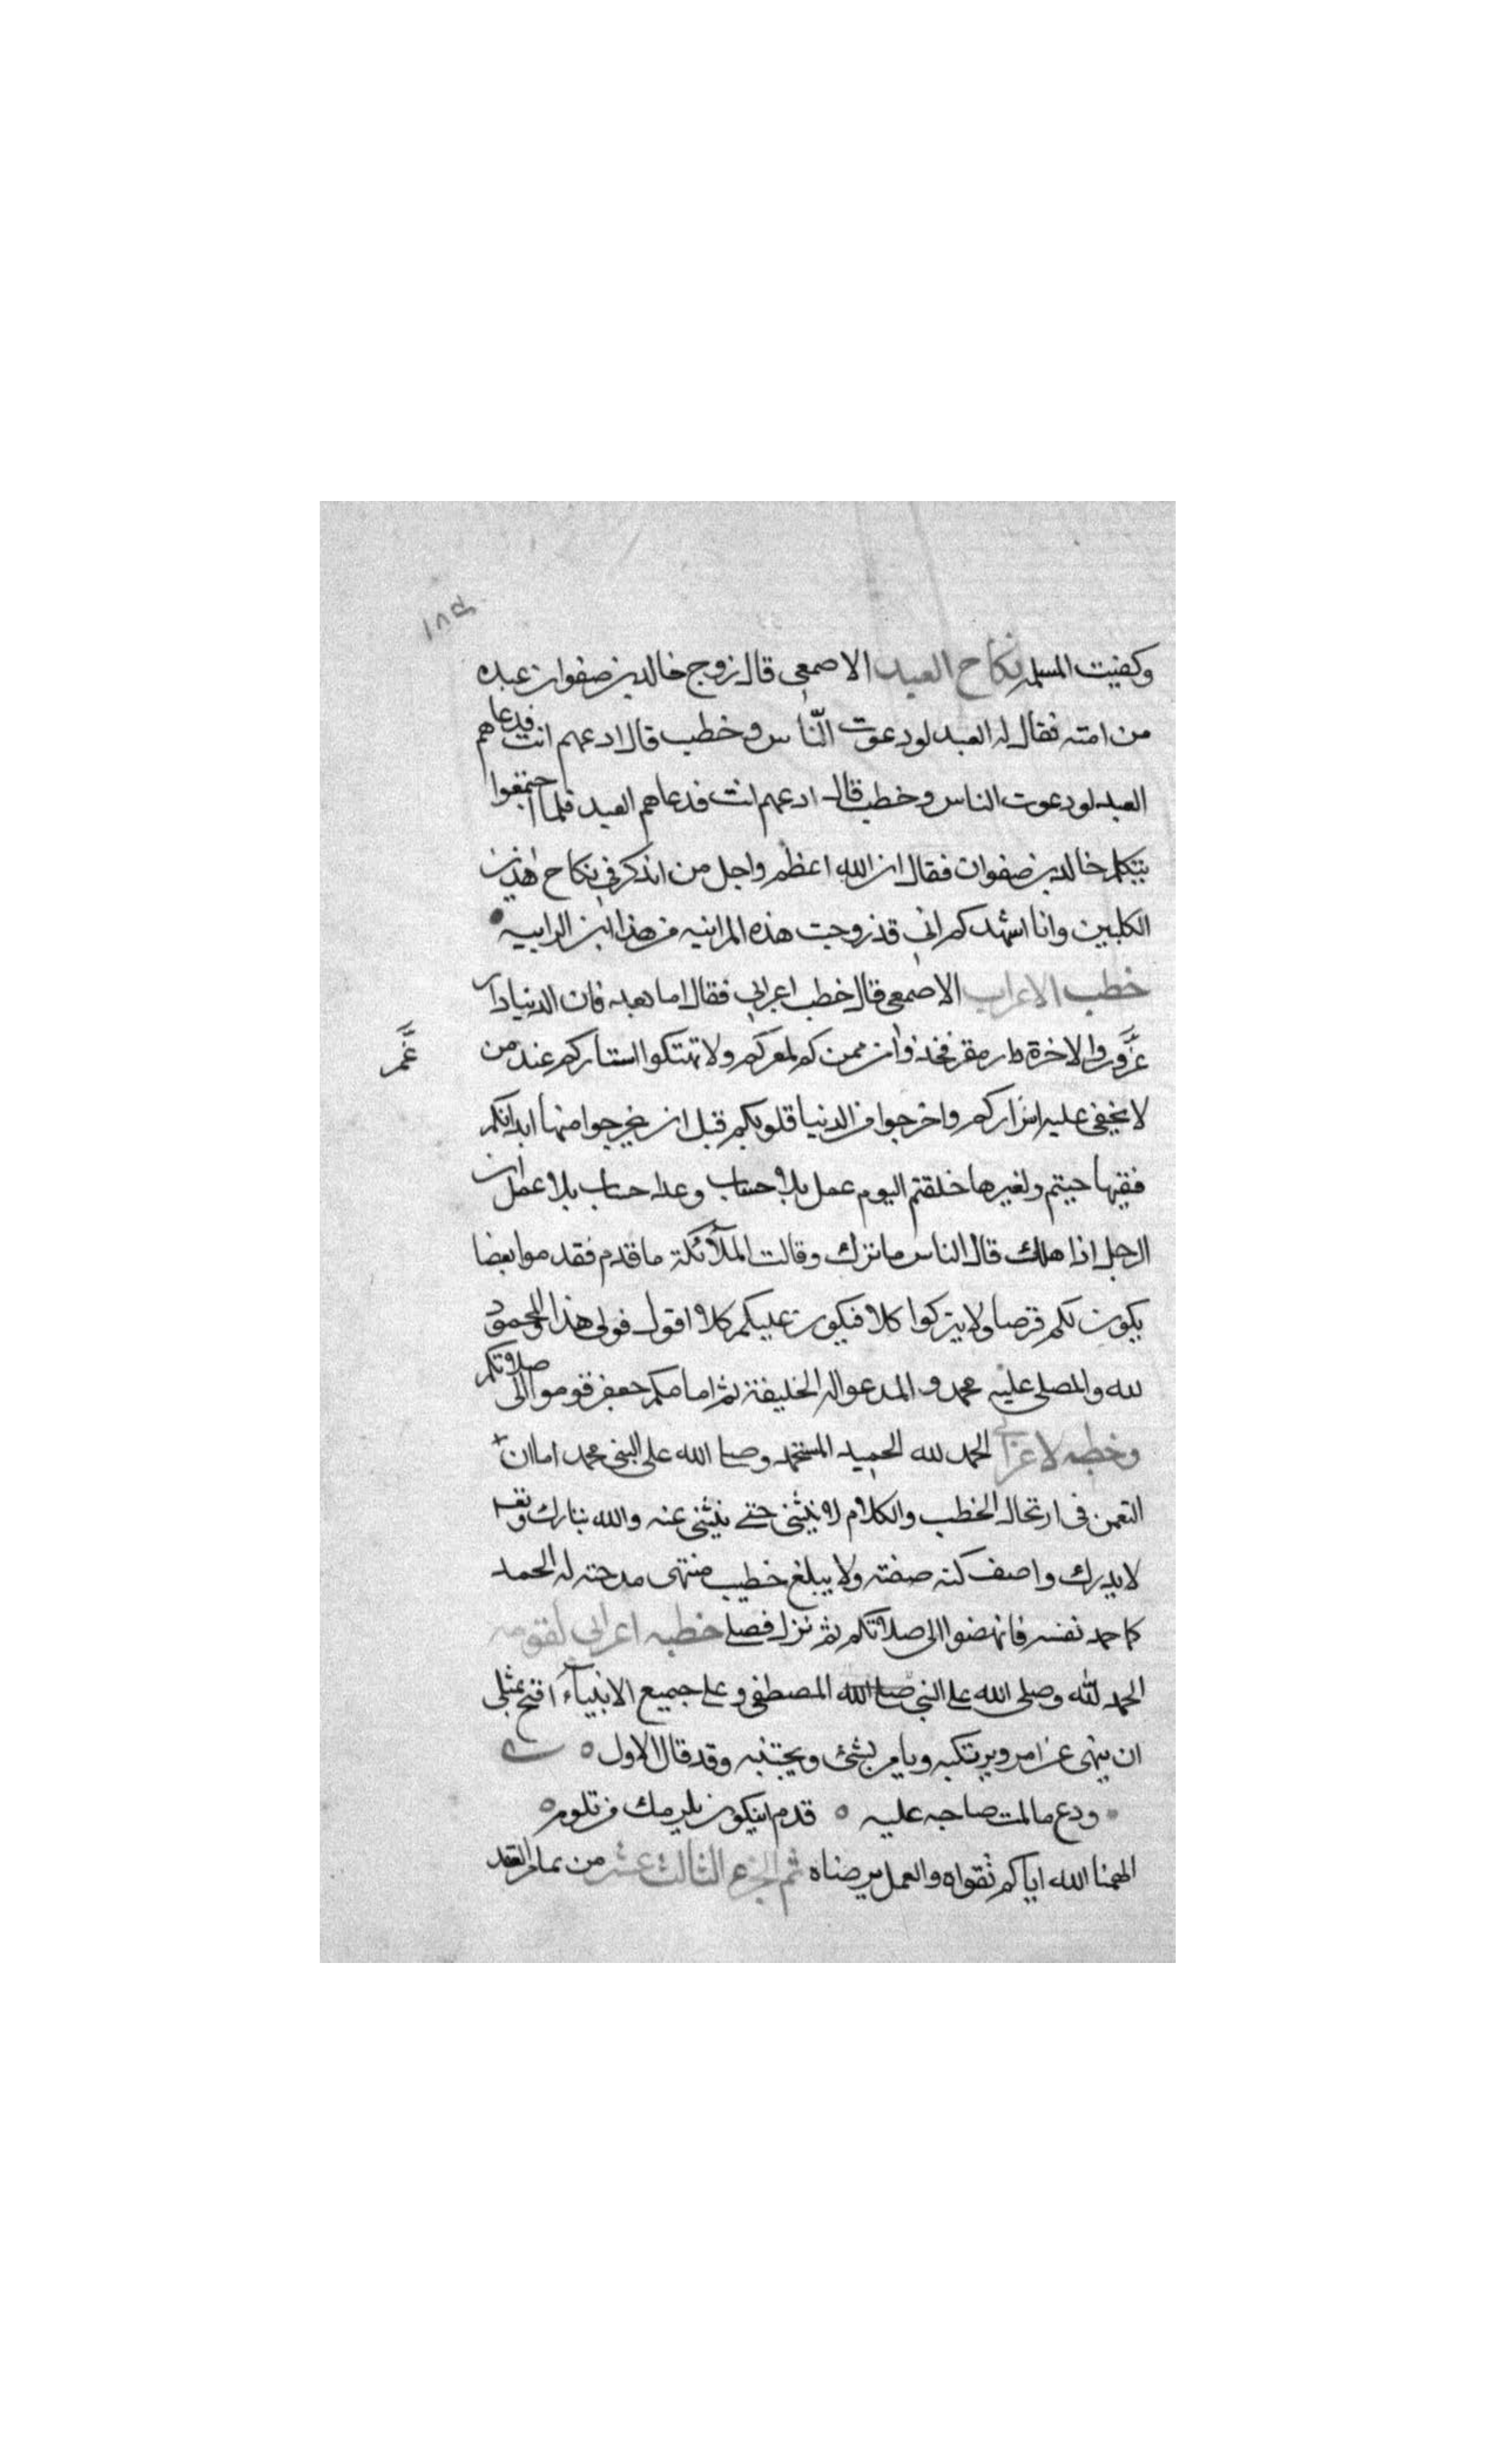 ١٨٥
وكفيت المسلة نكاح العبد الاصمعي قال زوج خالد بن صفوان عبده
من امته فقال له العبد لو دعوت النّاس وخطب قال ادعهم انت فدعاهم
العبد لو دعوت الناس وخطب قال ادعهم انت فدعاهم العبد فلما اجتمعوا
يتكلم خالد بن صفوان فقال ان الله اعظم واجل من ان ذكر في نكاح هذين
الكلبين وانا اشهدكم اني قد زوجت هذه الزانيه من هذا ابن الزانيه
خطب الاعراب الاصمعي قال خطب اعرابي فقال اما بعد فان الدنيا دار
غرور والاخرة دار مقر فخذوا من ممركم لمقركم ولا تهتكوا استاركم عند من
غمر
لا يخفى عليه اسراركم واخرجوا من الدنيا قلوبكم قبل ان يخرجوا منها ابدانكم
ففيها حييتم ولغيرها خلقتم اليوم عمل بلا حساب وغدا حساب بلا عمل ان
الرجل اذا هلك قال الناس ما ترك وقالت الملآئكة ما قدم فقدموا بعضا
يكون لكم قرضا ولا يتركوا كلا فيكون عليكم كلا اقول قولي هذا والمحمود
لله والمصلى عليه محمد والمدعو له الخليفة ثم امامكم جعفر قوموا الى صلاتكم
وخطبه لاعرابي الحمد لله الحميد المستحمد وصلى الله على النبي محمد اما ان
التعمق في ارتجال الخطب والكلام لا ينثني حتى ينثني عنه والله تبارك وتعـ
لا يدرك واصف كنه صفته ولا يبلغ خطيب منتهى مدحته له الحمد
كما حمد نفسه فانهضوا الى صلاتكم ثم نزل فصلى خطبه اعرابي لقومه
الحمد لله وصلى الله على النبي صلى الله المصطفى وعلى جميع الانبيآء اقبح بمثلي
ان ينهى عن امر ويرتكبه ويامر بشئ ويجتنبه وقد قال الاول
ودع ما لمت صاحبه عليه ٥ فدم ان يكون يلومك من تلوم ٥
الهمنا الله اياكم تقواه والعمل برضاه تم الجزء الثالث عشر من تمام العقد